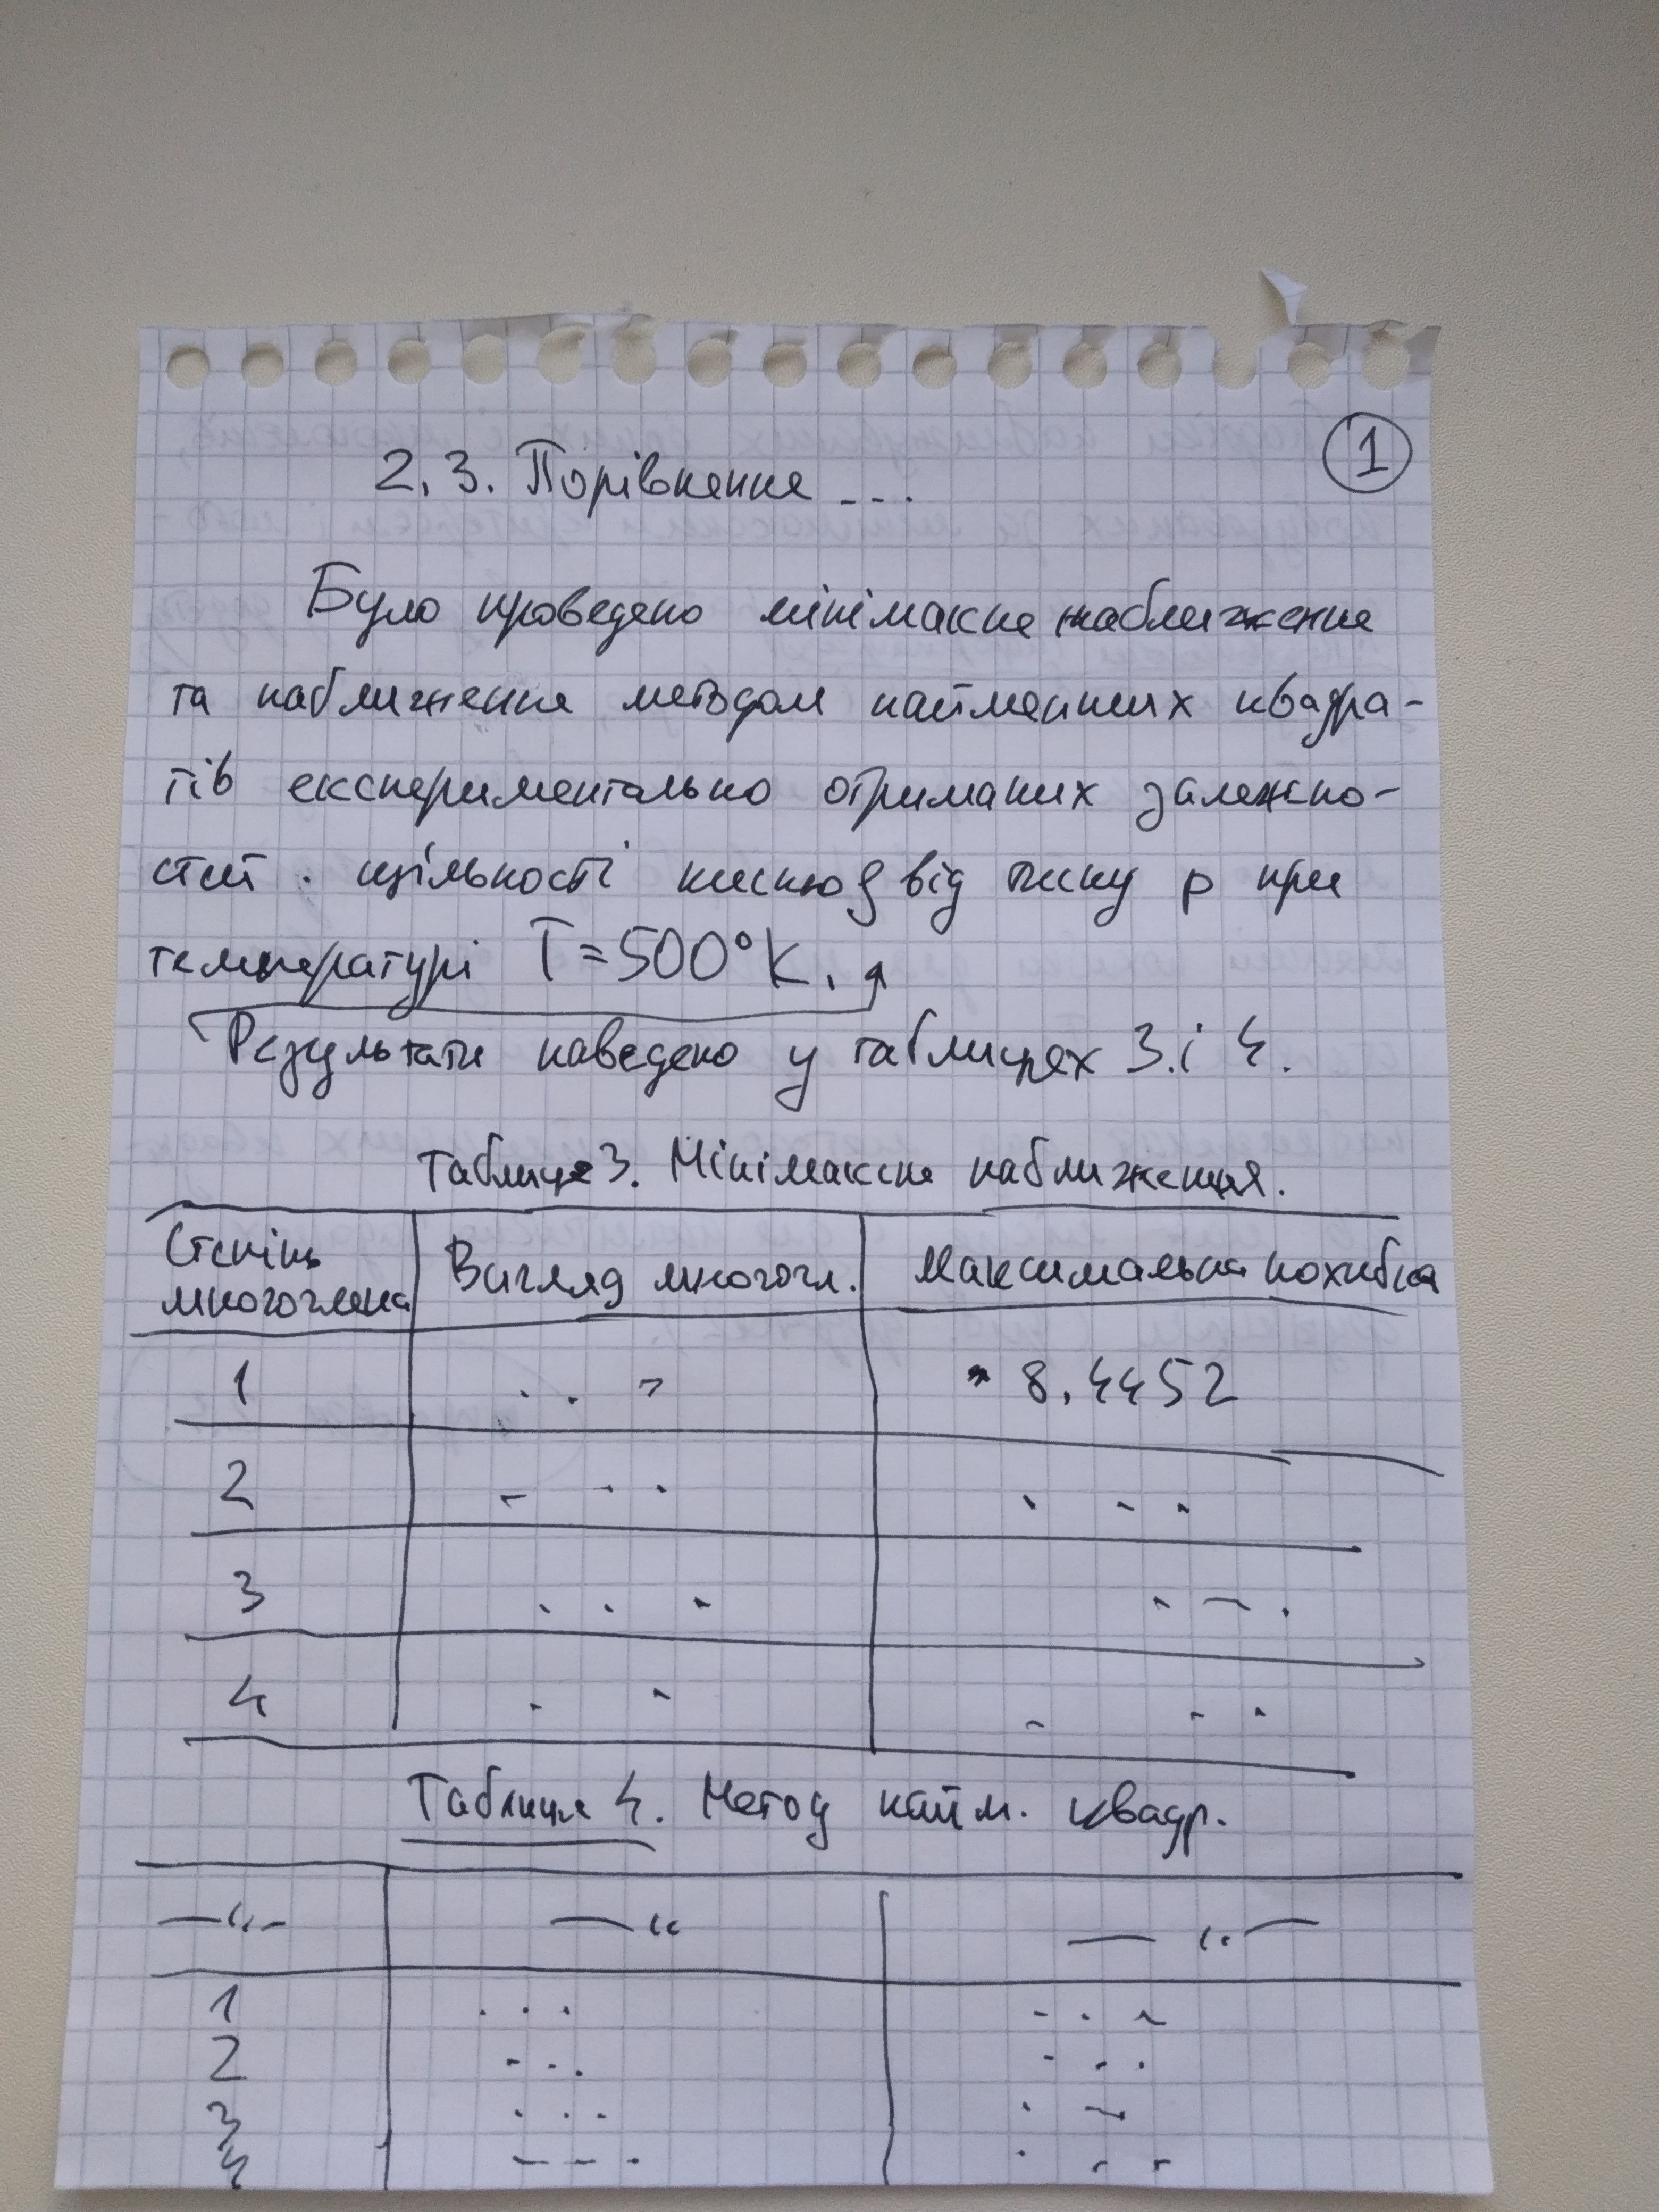 1
2.3. Порівнення ...
Було проведено мінімаксне наближення
та наближення методом найменших квадра-
тів експериментально отриманих залежно-
стей щільності кисню ρ від тиску p при
температурі T=500°K.
Результати наведено у таблицях 3 і 4.
Таблиця 3. Мінімаксне наближення.
Степінь многочлена Вигляд многочл. Максимальна похибка
1 ... 8.4452
2 ... ...
3 ... ...
4 .. ...
Таблиця 4. Метод найм. квадр.
—"— —" —"—
1 ... ...
2 ... ...
3 ... ...
4 ... ...